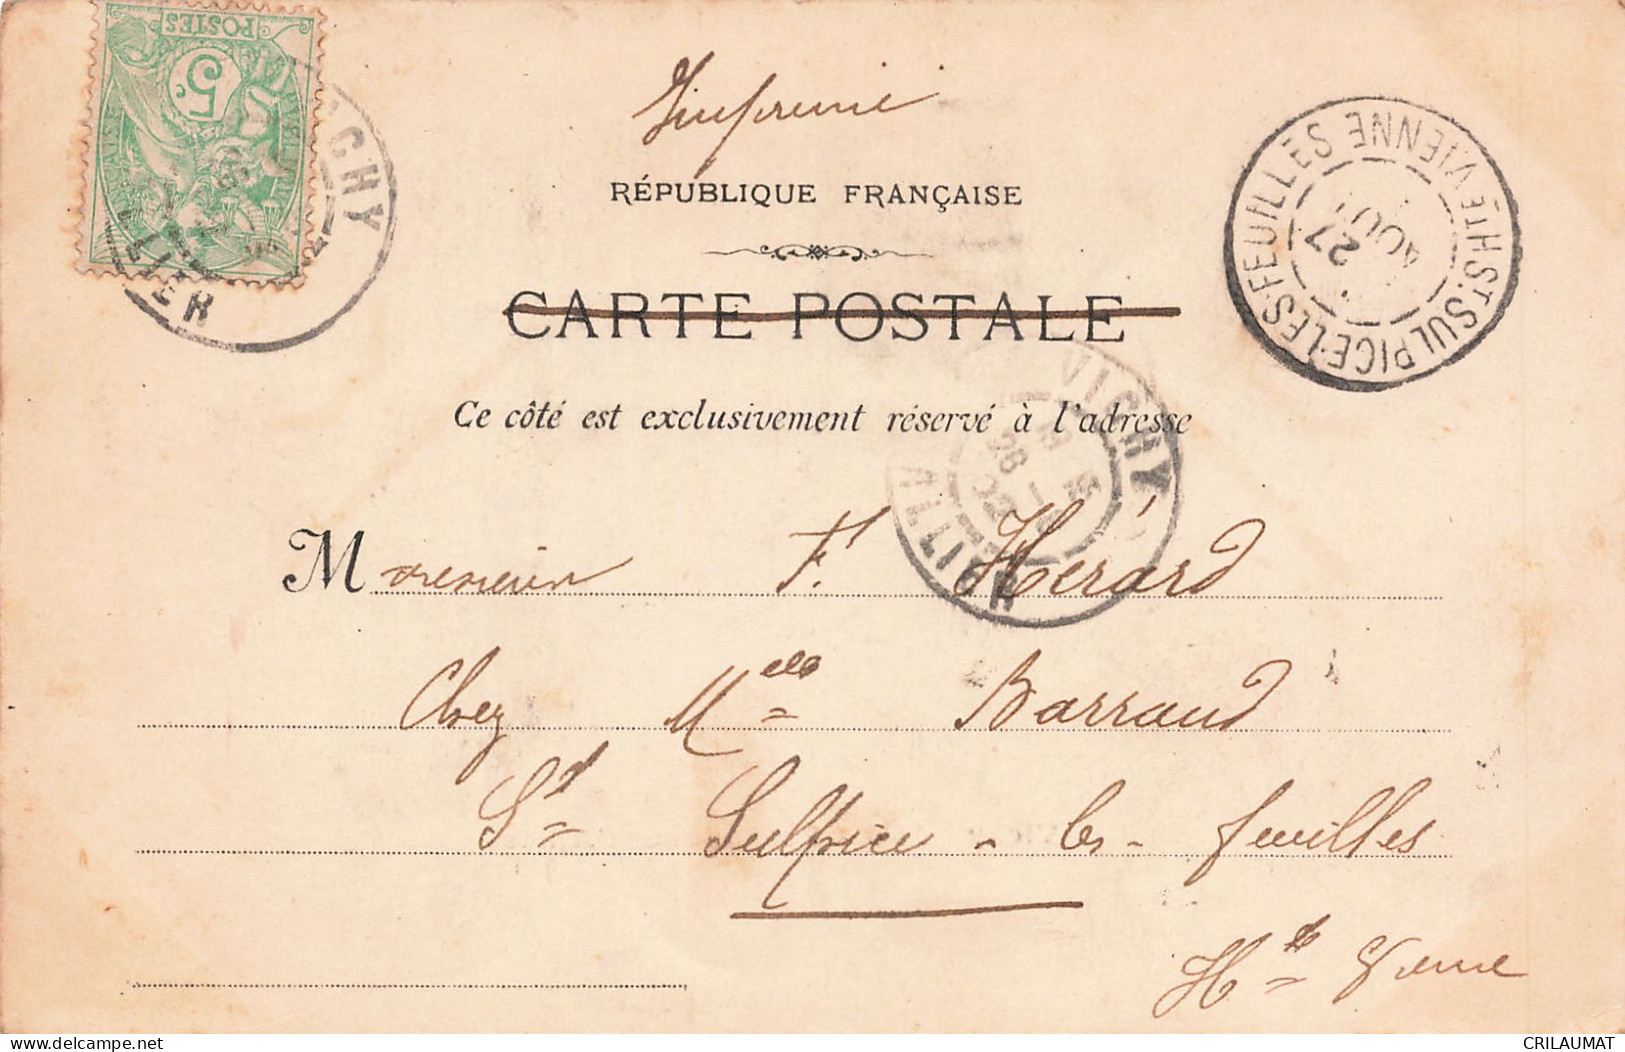 POSTES
5c
VICHY
ALLIER
Imprimé
RÉPUBLIQUE FRANÇAISE
CARTE POSTALE
Ce côté est exclusivement réservé à l'adresse
ST SULPICE-LES-FEUILLES HTE VIENNE
27
AOUT
VICHY
26
02
ALLIER
Monsieur F. Hérard
Chez Melle Barraud
St Sulpice-les-feuilles
Hte Vienne
delcampe.net
CRILAUMAT